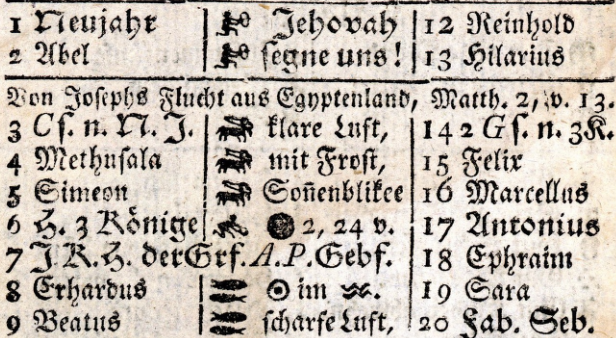 1 Neujahr Jehovah 12 Reinhold
2 Abel segne uns! 13 Hilarius
Von Josephs Flucht aus Egyptenland, Matth. 2, v. 13.
3 C s. n. N. J. klare Luft, 14 2 G s. n. 3K.
4 Methusala mit Frost, 15 Felix
5 Simeon Soñenblikee 16 Marcellus
6 H. 3 Könige 2, 24 v. 17 Antonius
7 J. K. H. der Grf. A. P. Gebf. 18 Ephraim
8 Erhardus ☉ im ♒. 19 Sara
9 Beatus scharfe Luft, 20 Fab. Seb.